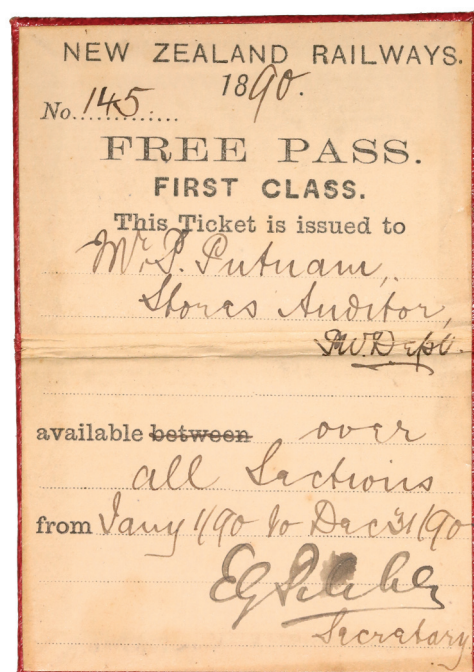 NEW ZEALAND RAILWAYS.
1890.
No. 145
FREE PASS.
FIRST CLASS.
This Ticket is issued to
Mr. P. Putnam,
Stores Auditor,
P.W. Dept.
available between over
all Sections
from Jany 1/90 to Dec 31/90
Secretary